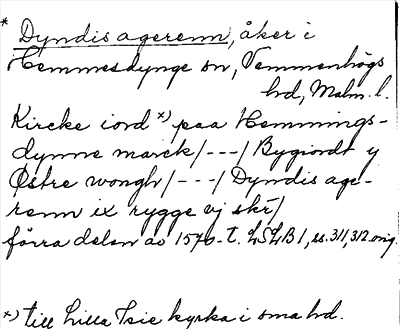 * Dyndis agerenn, åker i
Hemmesdynge sn, Vemmenhögs
hd, Malm. l.
Kircke iord *) paa Hemmings-
dynne marck/---/ Bygiordt y
Østre wongh/---/ Dyndis age-
renn ix rygge vj skr/
förra delen av 1570-t. LSLB 1, ss. 311, 312. orig.
*) till Lilla Isie kyrka i sma hd.